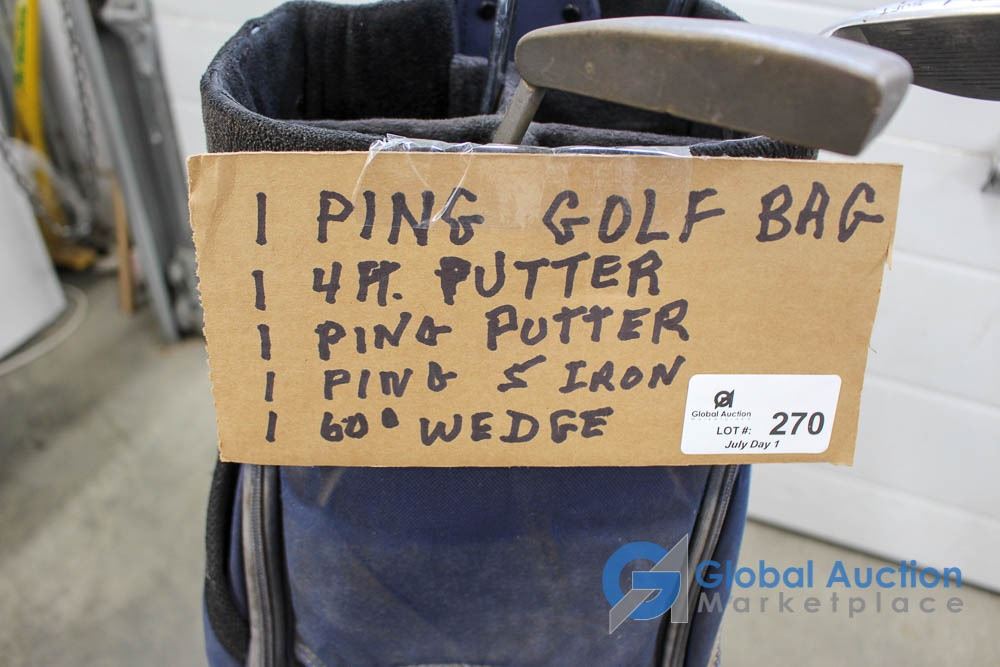 1 PING GOLF BAG
1 4 FT. PUTTER
1 PING PUTTER
1 PING 5 IRON
1 60° WEDGE
Global Auction
LOT #: 270
July Day 1
Global Auction
Marketplace